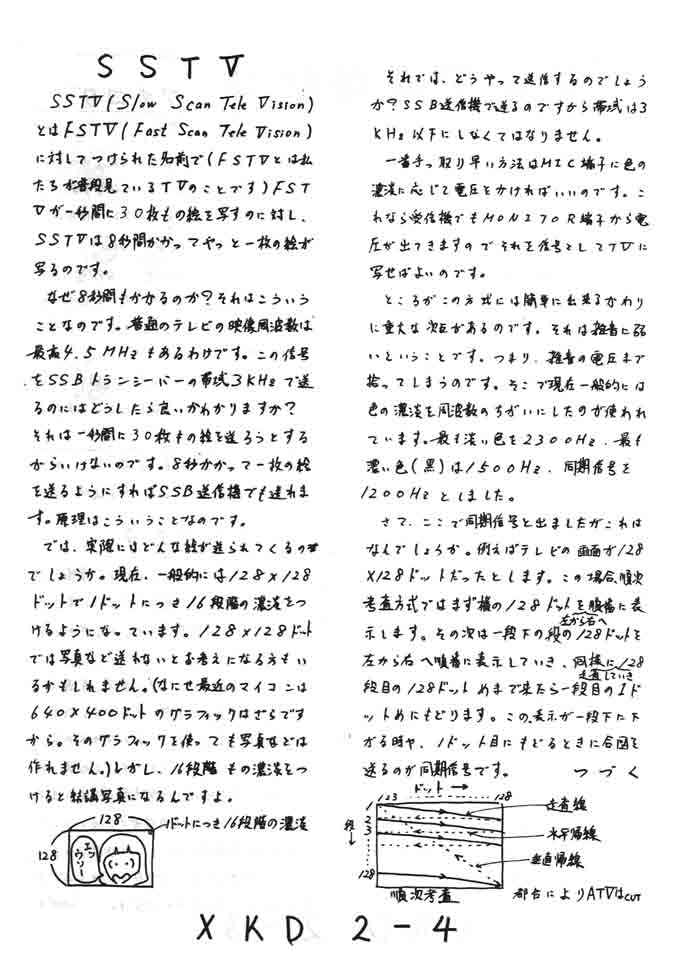 SSTV
SSTV(Slow Scan Tele Vision)
とはFSTV(Fast Scan Tele Vision)
に対してつけられた名前で(FSTVとは私
たちが普段見ているTVのことです)FST
Vが一秒間に30枚もの絵を写すのに対し、
SSTVは8秒間かかってやっと一枚の絵が
写るのです。
なぜ8秒間もかかるのか?それはこういう
ことなのです。普通のテレビの映像周波数は
最高4.5MHzもあるわけです。この信号
をSSBトランシーバーの帯域3KHzで送
るのにはどうしたら良いかわかりますか?
それは一秒間に30枚もの絵を送ろうとする
からいけないのです。8秒かかって一枚の絵
を送るようにすればSSB送信機でも送れま
す。原理はこういうことなのです。
では、実際にはどんな絵が送られてくるの
でしょうか。現在、一般的には128×128
ドットで1ドットにつき16段階の濃淡をつ
けるようになっています。128×128ドット
では写真など送れないとお考えになる方もい
るかもしれません。(なにせ最近のマイコンは
640×400ドットのグラフィックはざらです
から。そのグラフィックを使っても写真などは
作れません。)しかし、16段階もの濃淡をつ
けると結構写真になるんですよ。
128
1ドットにつき16段階の濃淡
128
エッ
ウソー
それでは、どうやって送信するのでしょう
か?SSB送信機で送るのですから帯域は3
KHz以下にしなくてはなりません。
一番手っ取り早い方法はMIC端子に色の
濃淡に応じて電圧をかければいいのです。こ
れなら受信機でもMONITOR端子から電
圧が出てきますのでそれを信号としてTVに
写せばよいのです。
ところがこの方式には簡単に出来るかわり
に重大な欠点があるのです。それは雑音に弱
いということです。つまり、雑音の電圧まで
拾ってしまうのです。そこで現在一般的には
色の濃淡を周波数のちがいにしたのが使われ
ています。最も淡い色を2300Hz、最も
濃い色(黒)は1500Hz、同期信号を
1200Hzとしました。
さて、ここで同期信号と出ましたがこれは
なんでしょうか。例えばテレビの画面が128
×128ドットだったとします。この場合、順次
考査方式ではまず横の128ドットを順番に表
示します。その次は一段下の段の128ドットを
左から右へ
左から右へ順番に表示していき、同様に128
走査していき
段目の128ドットめまで来たら一段目の1ド
ットめにもどります。この、表示が一段下に下
がる時や、1ドット目にもどるときに合図を
送るのが同期信号です。 つづく
ドット →
123 128
1
2
3
段
↓
128
走査線
水平帰線
垂直帰線
順次考査
都合によりATVはCUT
XKD 2-4